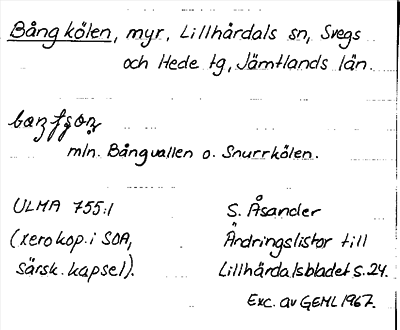 Bång kölen, myr, Lillhårdals sn, Svegs
och Hede tg, Jämtlands län.
mln. Bångvallen o. Snurrkölen.
ULMA 755:1 S. Åsander
(xerokop. i SOA, Ändringslistor till
särsk. kapsel). Lillhärdalsbladet s. 24.
Exc. av GEML 1967.